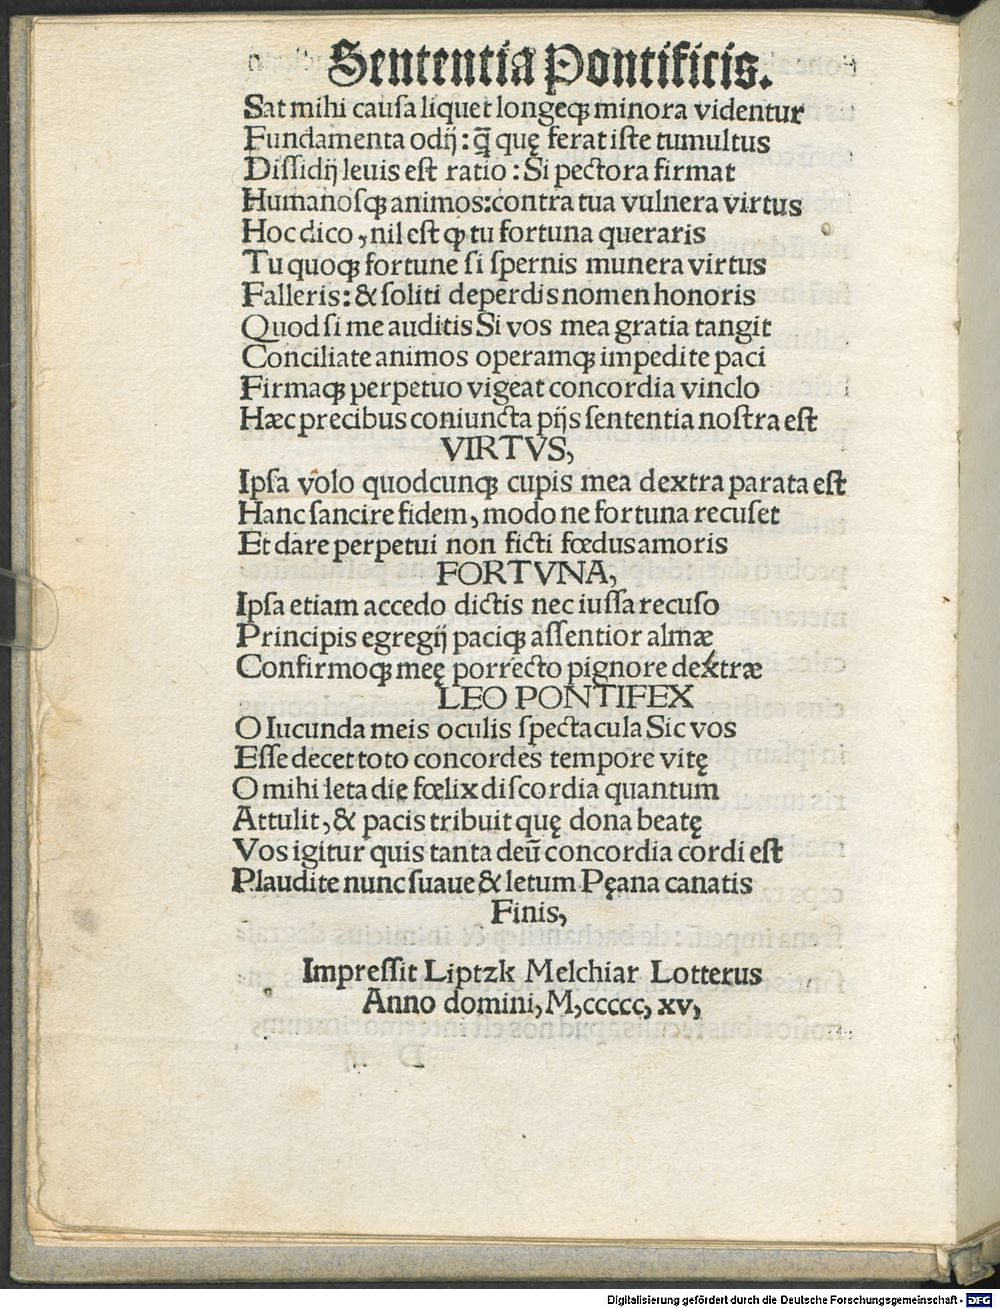 Sententia Pontificis.
Sat mihi cauſa liquet longeqꝫ minora videntur
Fundamenta odij: ꝗ̃ quę ferat iſte tumultus
Diſſidij leuis eſt ratio: Si pectora firmat
Humanoſqꝫ animos: contra tua vulnera virtus
Hoc dico, nil eſt ꝙ tu fortuna queraris
Tu quoqꝫ fortune ſi ſpernis munera virtus
Falleris: & ſoliti deperdis nomen honoris
Quod ſi me auditis Si vos mea gratia tangit
Conciliate animos operamqꝫ impedite paci
Firmaqꝫ perpetuo vigeat concordia vinclo
Hæc precibus coniuncta pijs ſententia noſtra eſt
VIRTVS,
Ipſa volo quodcunqꝫ cupis mea dextra parata eſt
Hanc ſancire fidem, modo ne fortuna recuſet
Et dare perpetui non ficti fœdus amoris
FORTVNA,
Ipſa etiam accedo dictis nec iuſſa recuſo
Principis egregij paciqꝫ aſſentior almæ
Confirmoqꝫ meę porrecto pignore dextræ
LEO PONTIFEX
O Iucunda meis oculis ſpectacula Sic vos
Eſſe decet toto concordes tempore vitę
O mihi leta die fœlix diſcordia quantum
Attulit, & pacis tribuit quę dona beatę
Vos igitur quis tanta deū concordia cordi eſt
Plaudite nunc ſuaue & letum Pęana canatis
Finis,
Impreſſit Liptzk Melchiar Lotterus
Anno domini, M,ccccc, xv,
Digitalisierung gefördert durch die Deutsche Forschungsgemeinschaft - DFG